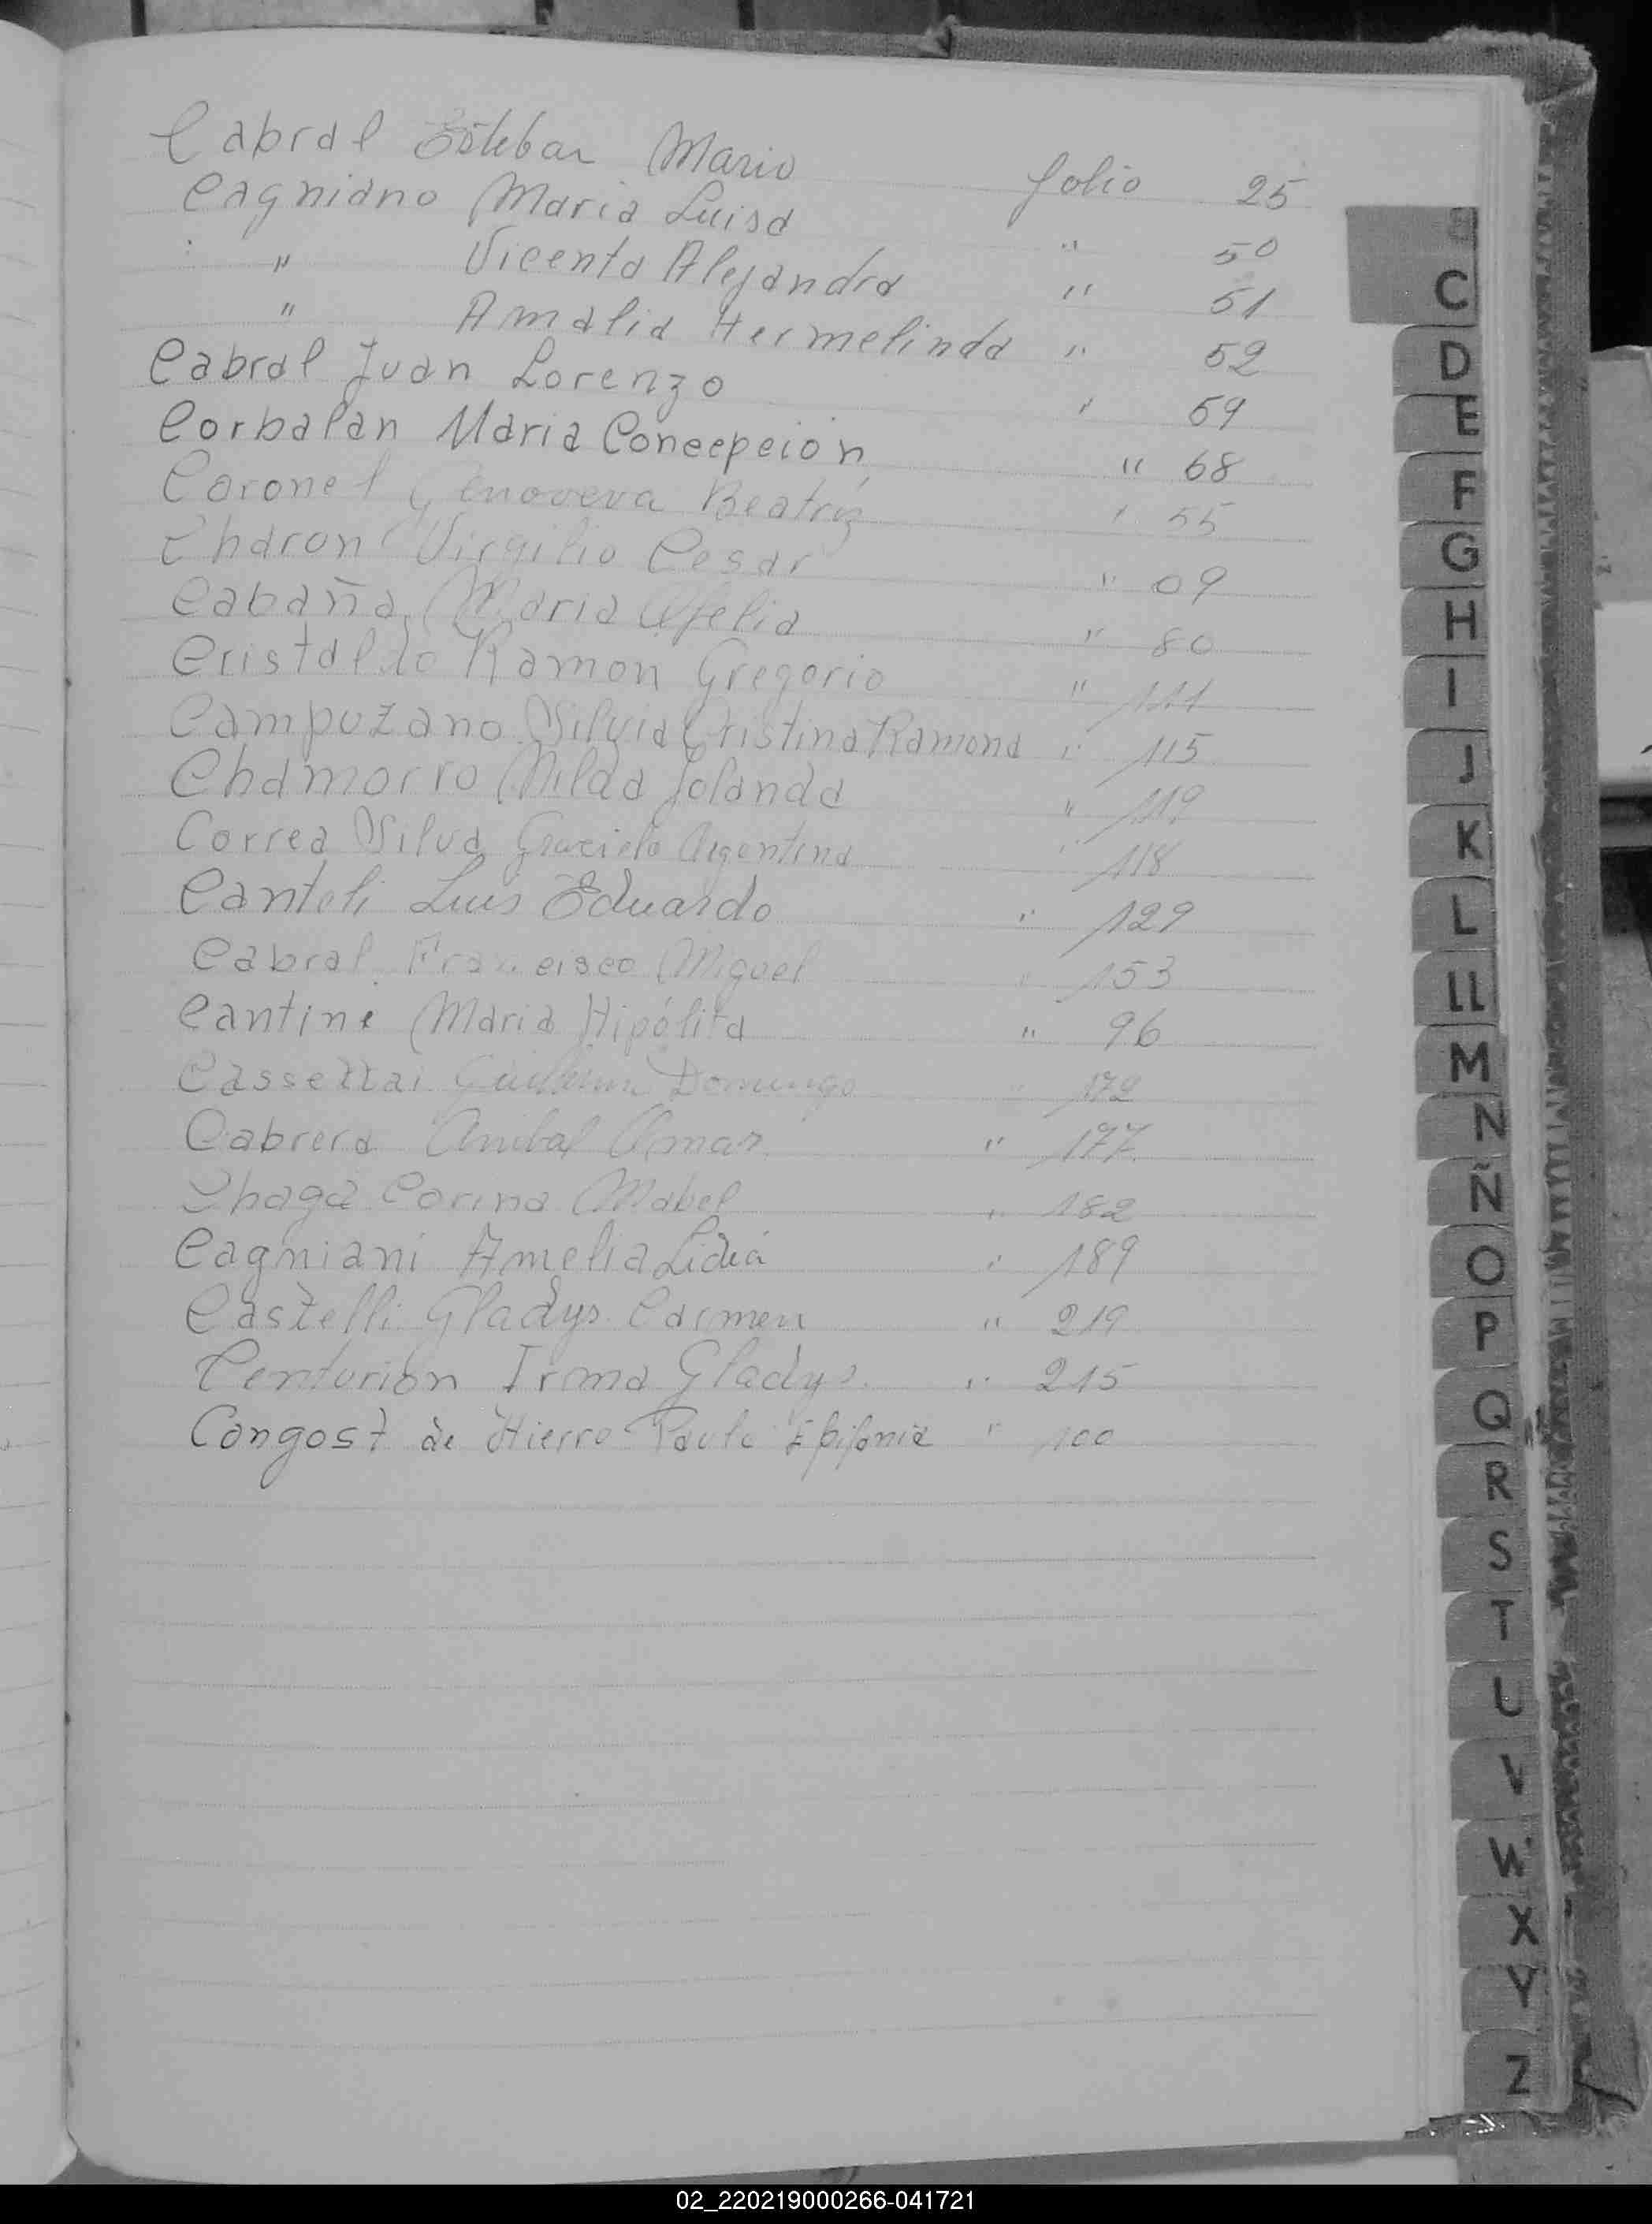 Cabral Esteban Mario folio 25
Cagniano Maria Luisa " 50
" Vicenta Alejandra " 51
" Amalia Hermelinda " 52
Cabral Juan Lorenzo " 59
Corbalan Maria Concepción " 68
Coronel Genoveva Beatriz " 55
Charon Virgilio Cesar " 09
Cabaña Maria Ofelia " 80
Cristaldo Ramon Gregorio " 111
Campuzano Silvia Cristina Ramona " 115
Chamorro Nilda Jolanda " 119
Correa Silva Graciela Argentina " 118
Canteli Luis Eduardo " 129
Cabral Francisco Miguel " 153
Cantine Maria Hipólita " 96
Domingo " 172
Cabrera Anibal Omar " 177
Chaga Corina Mabel " 182
Cagniani Amelia Lidia " 189
Castelli Gladys Carmen " 219
Centurión Irma Gladys " 215
Congost de Hierro Paula Epifania " 100
C
D
E
F
G
H
I
J
K
L
LL
M
N
Ñ
O
P
Q
R
S
T
U
V
W
X
Y
Z
02_220219000266-041721